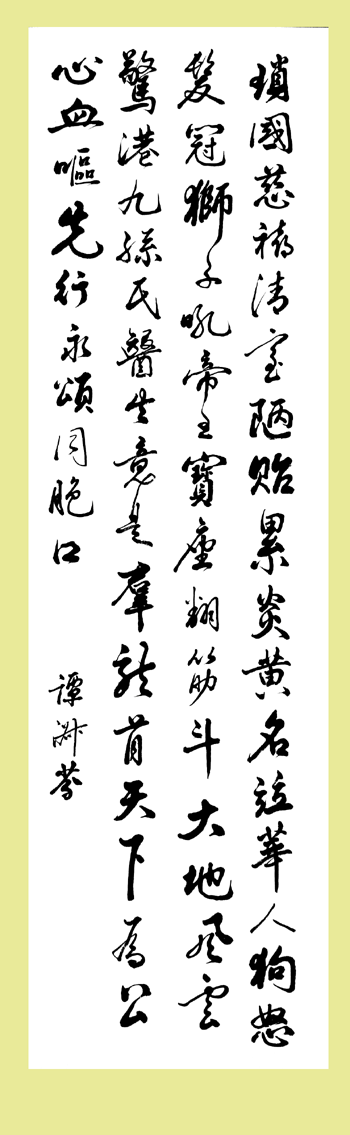 瑣國慈禧清室陋貽累炎黃名竝華人狗怒
髮冠獅子吼帝王寶座翻筋斗大地風雲
驚港九孫氏醫生意是羣龍首天下為公
心血嘔先行永頌同胞口
譚淵